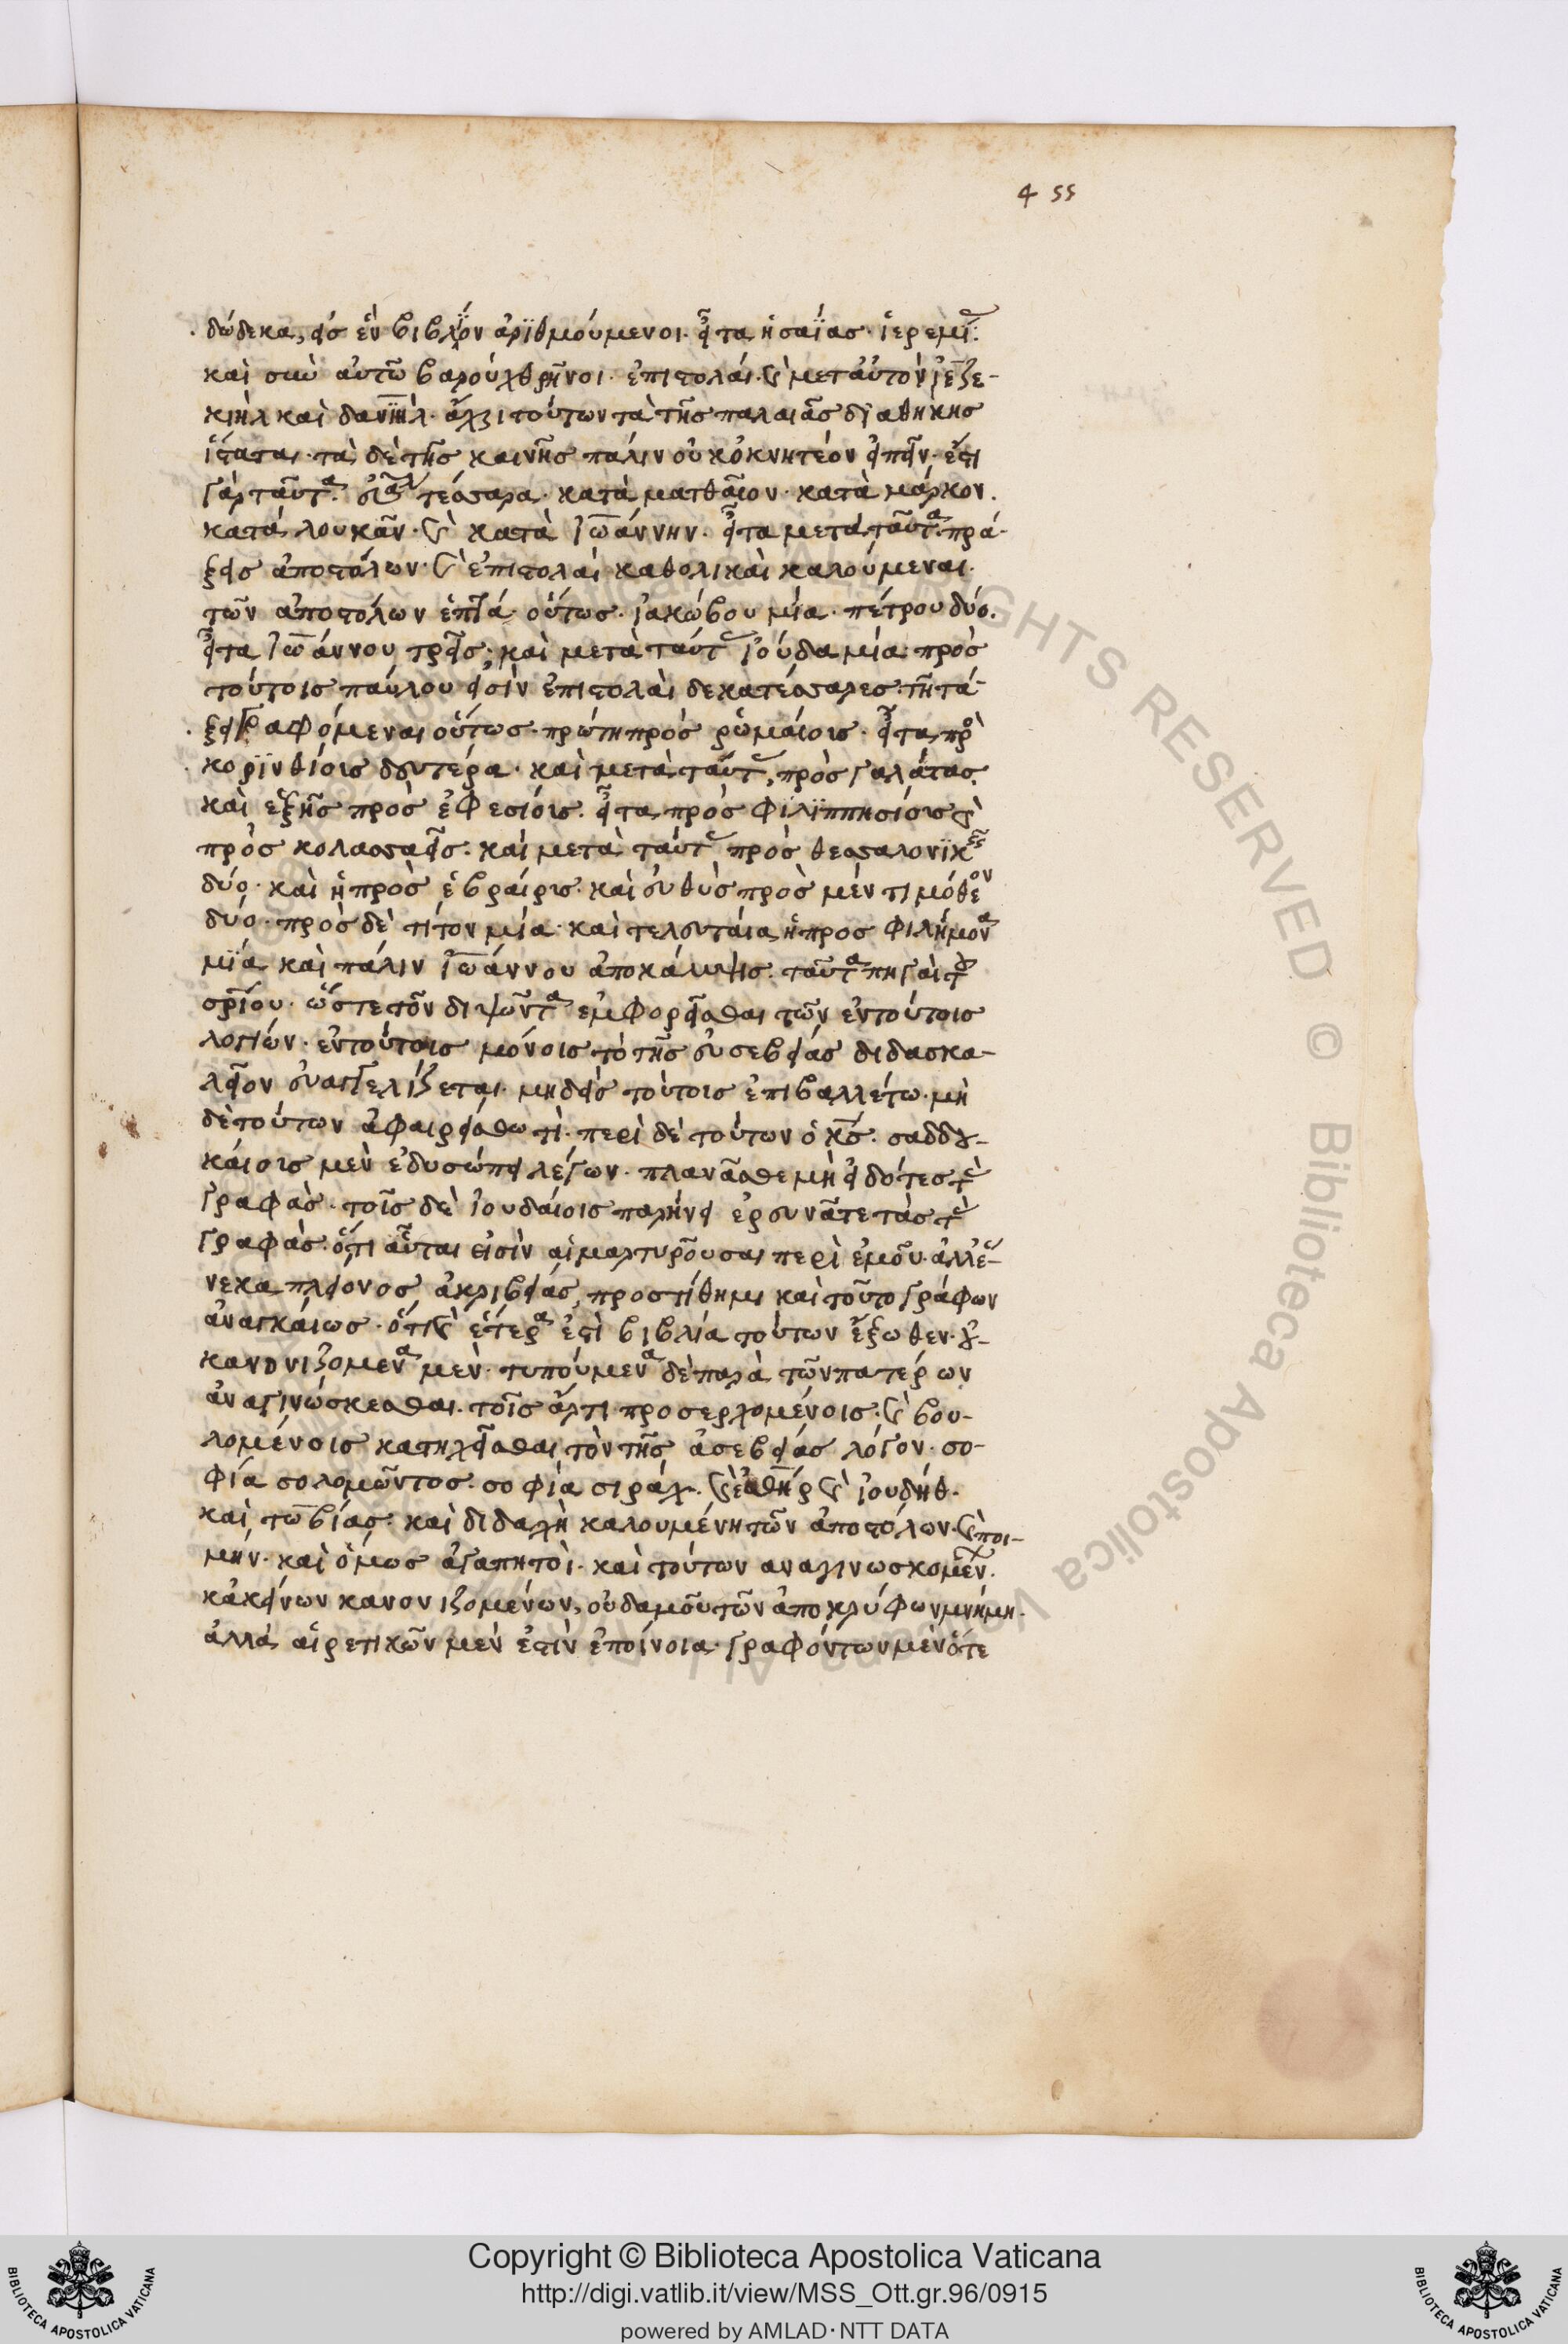 455
δώδεκα, εἰς ἓν βιβλΐον ἀρϊθμούμενοι. εἶτα ἡσαΐας. ἱερεμί:
καὶ σὺν αὐτῶ βαρούχ θρῆνοι. ἐπιστολάι. καὶ μετ αὐτὸν ἰεζε-
κιὴλ καὶ δανϊὴλ. ἄχρι τούτων τὰ τῆς παλαιᾶς δϊαθήκης
ἵσταται. τὰ δὲ τῆς καινῆς πάλιν οὐκ ὀκνητέον εἰπεῖν. ἔστι
γὰρ ταῦτα. εὐα τέσσαρα. κατὰ ματθαῖον. κατὰ μάρκον.
κατὰ λουκᾶν. καὶ κατὰ ἰωάννην. εἶτα μετὰ ταῦτα πρά-
ξεις ἀποστόλων. καὶ ἐπιστολαὶ καθολικαὶ καλούμεναι.
τῶν ἀποστόλων ἑπτά. οὕτως. ἰακώβου μία. πέτρου δύο.
εἶτα ἰωάννου τρεῖς. καὶ μετὰ ταύτ ἰούδα μία. πρὸς
τούτοις παύλου εἰσὶν ἐπιστολαὶ δεκατέσσαρες. τῆ τά-
ξει γραφόμεναι οὕτως. πρώτη πρὸς ῥωμαίοις. εἶτα πρὸ
κορϊνθίοις δευτέρα. καὶ μετὰ ταῦτ, πρὸς γαλάτας.
καὶ ἑξῆς πρὸς ἐφεσίοις. εἶτα πρὸς φιλϊππησίοις καὶ
πρὸς κολασσαεῖς. καὶ μετὰ ταύτ πρὸς θεσσαλονϊκεῖς
δύο. καὶ ἡ πρὸς ἑβραίοις. καὶ εὐθὺς πρὸς μὲν τιμόθεον
δύο. πρὸς δὲ τίτον μία. καὶ τελευταία ἡ προς φιλήμονα
μϊά. καὶ πάλιν ἰωάννου ἀποκάλυψις. ταῦτα πηγαὶ τ
σρίου. ὥστε τὸν διψῶντα ἐμφορεῖσθαι τῶν ἐν τούτοις
λογίων. ἐν τούτοις μόνοις τὸ τῆς εὐσεβείας διδασκα-
λεῖον εὐαγγελίζεται. μηδεὶς τούτοις ἐπιβαλλέτω. μὴ
δὲ τούτων ἀφαιρείσθω τὶ. περὶ δὲ τούτων ὁ κς. σαδδου-
καίοις μὲν ἐδυσώπει λέγων. πλανᾶσθε μὴ εἰδότες τ
γραφὰς. τοῖς δὲ ἰουδαίοις παρήνει ἐρευνᾶτε τὰς τ
γραφὰς. ὅτι αὗται εἰσὶν αἱ μαρτυροῦσαι περὶ ἐμοῦ. ἀλλ ἕ-
νεκα πλείονος ἀκριβείας, προστίθημι καὶ τοῦτο γράφων
ἀναγκαίως. ὅτι καὶ ἕτερα ἐστὶ βιβλία τούτων ἔξωθεν. οὐ-
κανονιζομενα μὲν. τυπούμενα δὲ παρὰ τῶν πατέρων
ἀναγινώσκεσθαι. τοῖς ἄρτι προσερχομένοις. καὶ βου-
λομένοις κατηχεῖσθαι τὸν τῆς ἀσεβείας λόγον. σο-
φία σολομῶντος. σοφία σιράχ. καὶ ἐσθῆρ καὶ ἰουδήθ.
καὶ τωβίας. καὶ διδαχὴ καλουμένη τῶν ἀποστόλων. καὶ ποι-
μην. καὶ ὅμως ἀγαπητοὶ. καὶ τούτων ἀναγινωσκομεν.
κἀκείνων κανονιζομένων, οὐδαμοῦ τῶν ἀποκρύφων μνήμη.
ἀλλὰ αἱρετικῶν μὲν ἐστὶν ἐποίνοια. γραφόντων μὲν ὅτε
RIGHTS RESERVED © Biblioteca Apostolica Vaticana
BIBLIOTECA APOSTOLICA VATICANA
Copyright © Biblioteca Apostolica Vaticana
http://digi.vatlib.it/view/MSS_Ott.gr.96/0915
powered by AMLAD·NTT DATA
BIBLIOTECA APOSTOLICA VATICANA